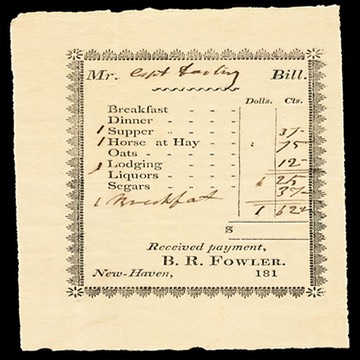 Mr. Capt Bill.
Dolls. Cts.
Breakfast - - -
Dinner - - - -
1 Supper - - - - 37
1 Horse at Hay - - 75
Oats - - - - -
1 Lodging - - - - 12
Liquors - - - - 25
Segars - - - - 37
1 Breakfast
1 62
$
Received payment,
B. R. FOWLER.
New-Haven, 181